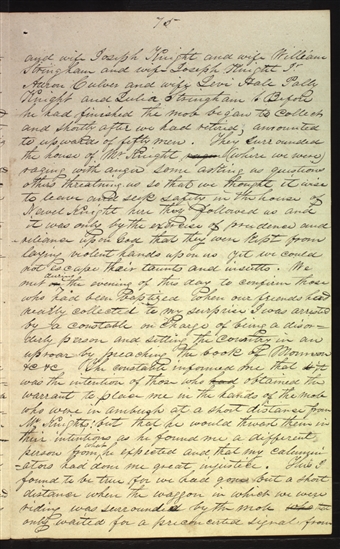 75
and wife Joseph Knight and wife William
Stringham and wife Joseph Knight Jr
Aaron Culver and wife Levi Hale Polly
Knight and Julia Stringham Before
he had finished the mob began to collect
and shortly after we had retired, amounted
to upwards of fifty men. They surrounded
the house of Mr Knight (where we were)
raging with anger some asking us questions
others threatning us so that we thought it wise
to leave and seek safety in the house of
Newel Knight here they followed us and
it was only by the exercise of prudence and
reliance upon God that they were kept from
laying violent hands upon us yet we could
not escape their taunts and insults. We
met during the evening of this day to confirm those
who had been baptized when our friends had
nearly collected to my surprise I was arrested
by a constable in charge of being a disor-
derly person and setting the country in an
uproar by preaching the book of Mormon
&c &c The constable informed me that it
was the intention of those who had obtained the
warrant to place me in the hands of the mob
who were in ambush at a short distance from
Mr Knights; but that he would thwart them in
their intentions as he found me a different
person from what he expected and that my calumni-
ators had done me great injustice. This I
found to be true for we had gone but a short
distance when the waggon in which we were
riding was surrounded by the mob who
only waited for a preconcerted signal from